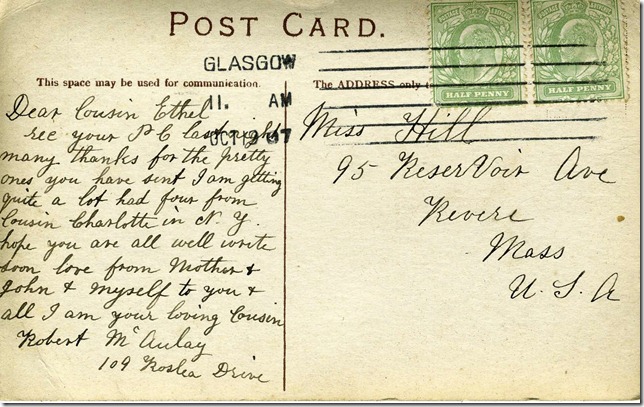 POST CARD.
GLASGOW
11. AM
OCT 9 07
This space may be used for communication.
The ADDRESS only
HALF PENNY
HALF PENNY
Dear Cousin Ethel
rec your P C last night
many thanks for the pretty
ones you have sent I am getting
quite a lot had four from
Cousin Charlotte in N. Y.
hope you are all well write
soon love from Mother &
John & myself to you &
all I am your loving Cousin
Robert McAulay
109 Roslea Drive
Miss Hill
95 Reservoir Ave
Revere
Mass
U. S. A